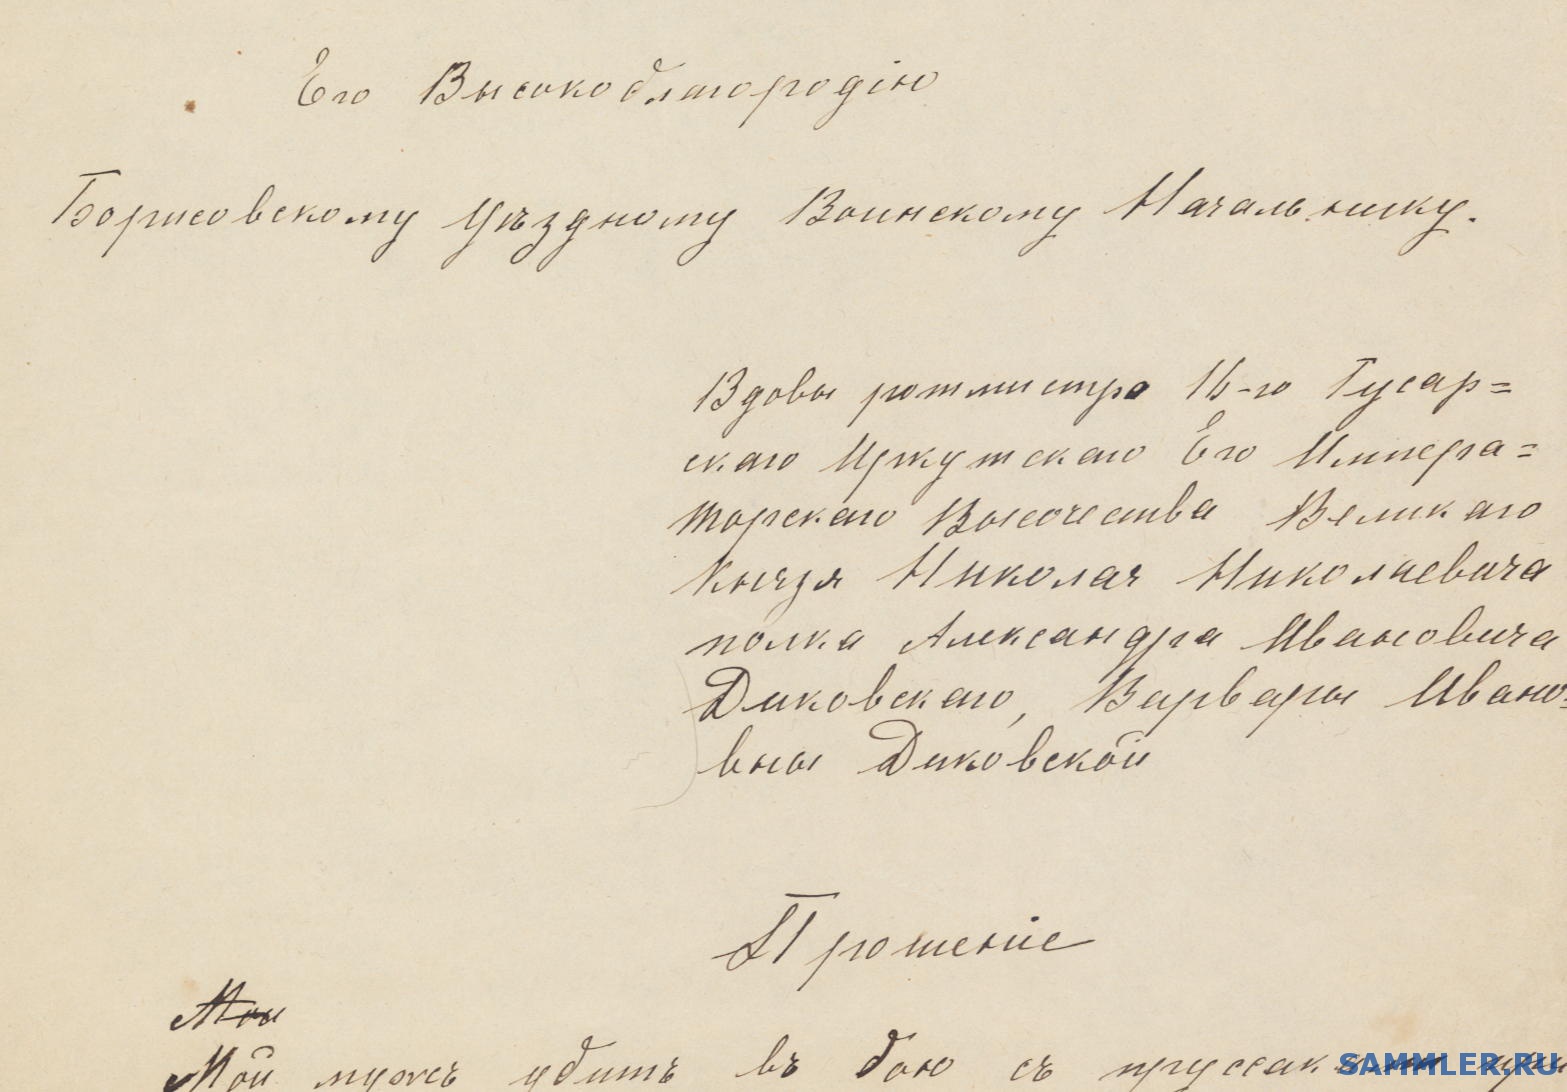 Его Высокоблагородію
Борисовскому Уѣздному Воинскому Начальнику.
Вдовы ротмистра 16-го Гусар=
скаго Иркутскаго Его Импера=
торскаго Высочества Великаго
Князя Николая Николаевича
полка Александра Ивановича
Диковскаго, Варвары Ивано=
вны Диковской
Прошеніе
Мой
Мой мужъ убитъ въ бою съ пруссаками
SAMMLER.RU